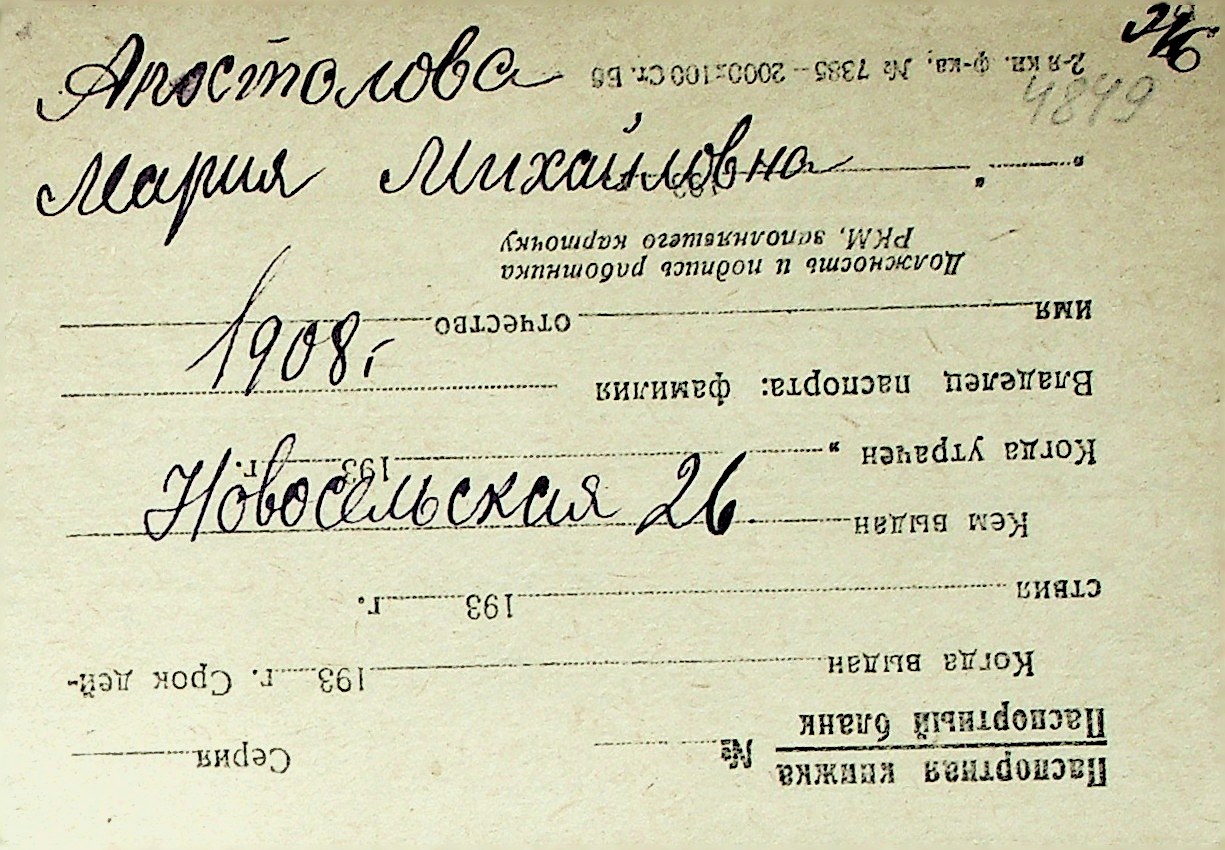 Апостолова
Мария Михайловна
1908 г
Новосельская 26
4849
Паспортная книжка № Серия
Паспортный бланк
Когда выдан 193 г. Срок дей-
ствия 193 г.
Кем выдан
Когда утрачен „ 193 г.
Владелец паспорта: фамилия
имя отчество
Должность и подпись работника
РКМ, заполнявшего карточку
„ 193
2-я кн. ф-ка, № 7385—2000х100 Ст. Б6